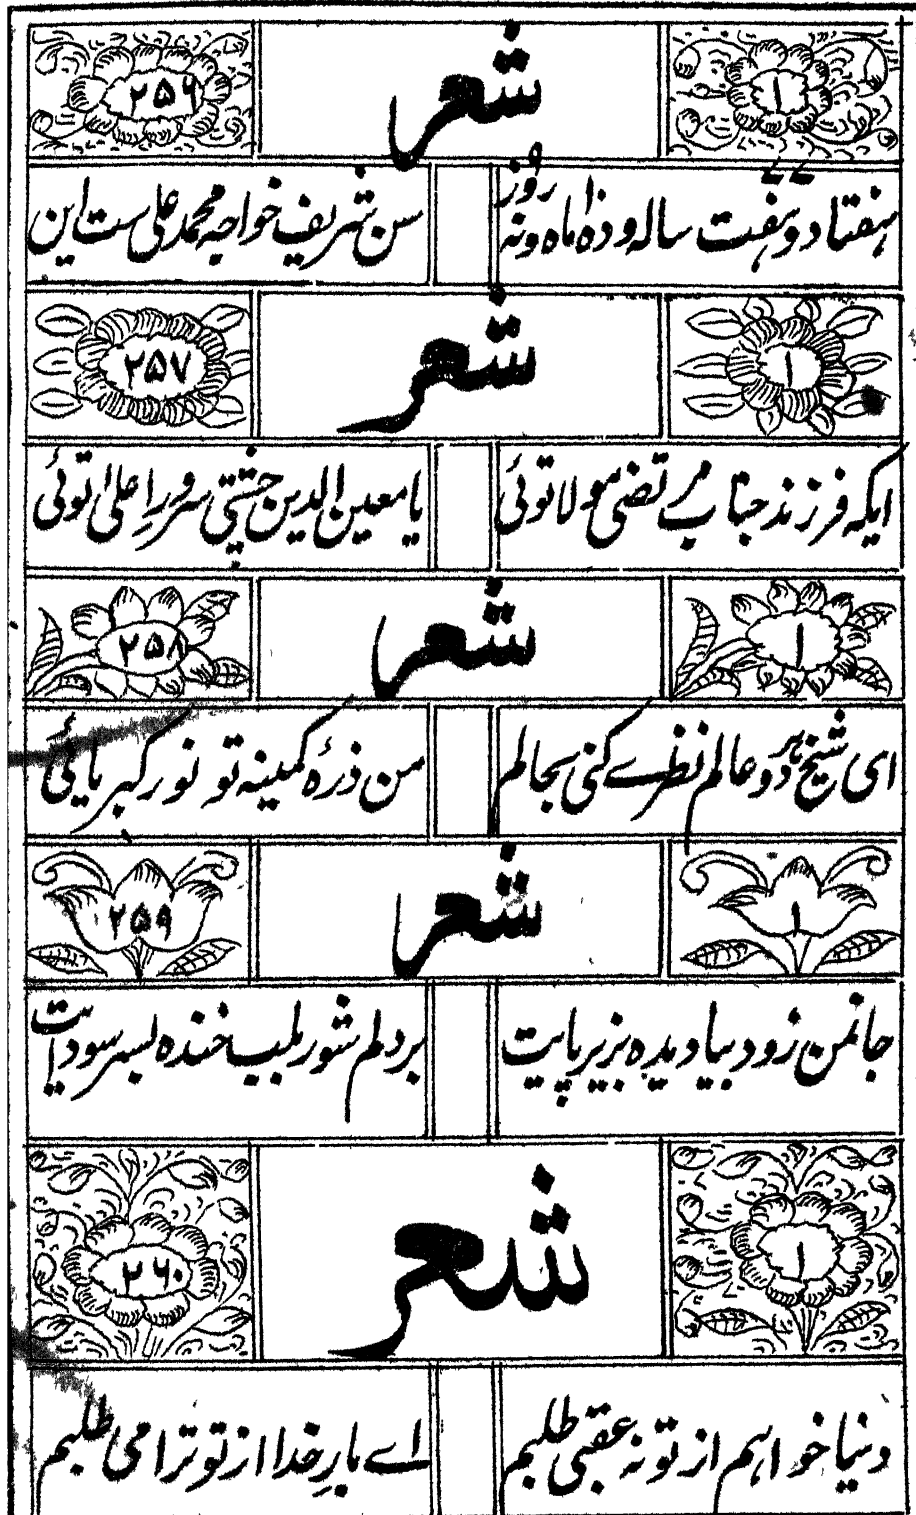 ۱ شعر ۲۵۶
ہفتاد و ہفت سالہ و دہ ماہ و نہ روز سن شریف خواجہ محمد علی ست این
۱ شعر ۲۵۷
ایکہ فرزند جناب مرتضی مولا توئی یا معین الدین چشتی سرور اعلی توئی
۱ شعر ۲۵۸
ای شیخ ہر دو عالم نظرے کنی بحالم من ذرۂ کمینہ تو نور کبریائی
۱ شعر ۲۵۹
جانمن زود بیا دیدہ بزیر پایت بر دلم شور بلب خندہ بسر سودایت
۱ شعر ۲۶۰
دنیا خواہم از تو نہ عقبی طلبم اے بارِ خدا از تو ترا می طلبم